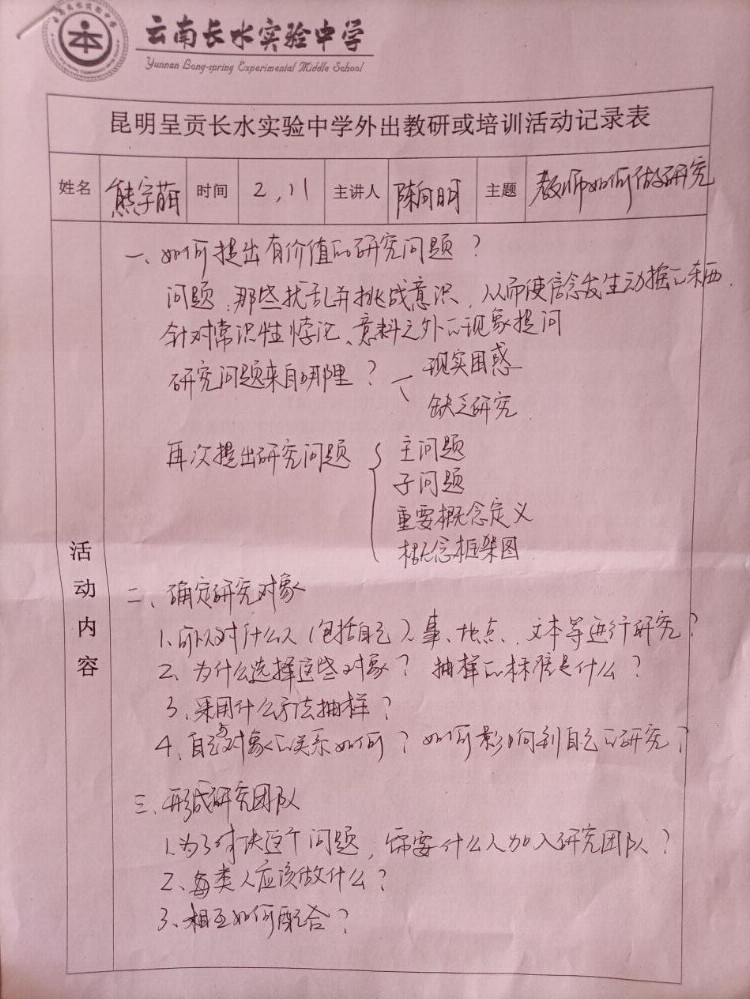 云南长水实验中学
Yunnan Long-spring Experimental Middle School
昆明呈贡长水实验中学外出教研或培训活动记录表
姓名 熊宇萌 时间 2,11 主讲人 陈向明 主题 教师如何做研究
活动内容
一、如何提出有价值的研究问题？
问题：那些扰乱并挑战意识，从而使信念发生动摇的东西.
针对常识性悖论、意料之外的现象提问
研究问题来自哪里？ 现实困惑
缺乏研究
再次提出研究问题 主问题
子问题
重要概念定义
概念框架图
二、确定研究对象
1、可以对什么人（包括自己）、事、地点、文本等进行研究？
2、为什么选择这些对象？ 抽样的标准是什么？
3、采用什么方法抽样？
4、自己与对象的关系如何？如何影响到自己的研究？
三、形成研究团队
1、为了对决这个问题，需要什么人加入研究团队？
2、每类人应该做什么？
3、相互如何配合？